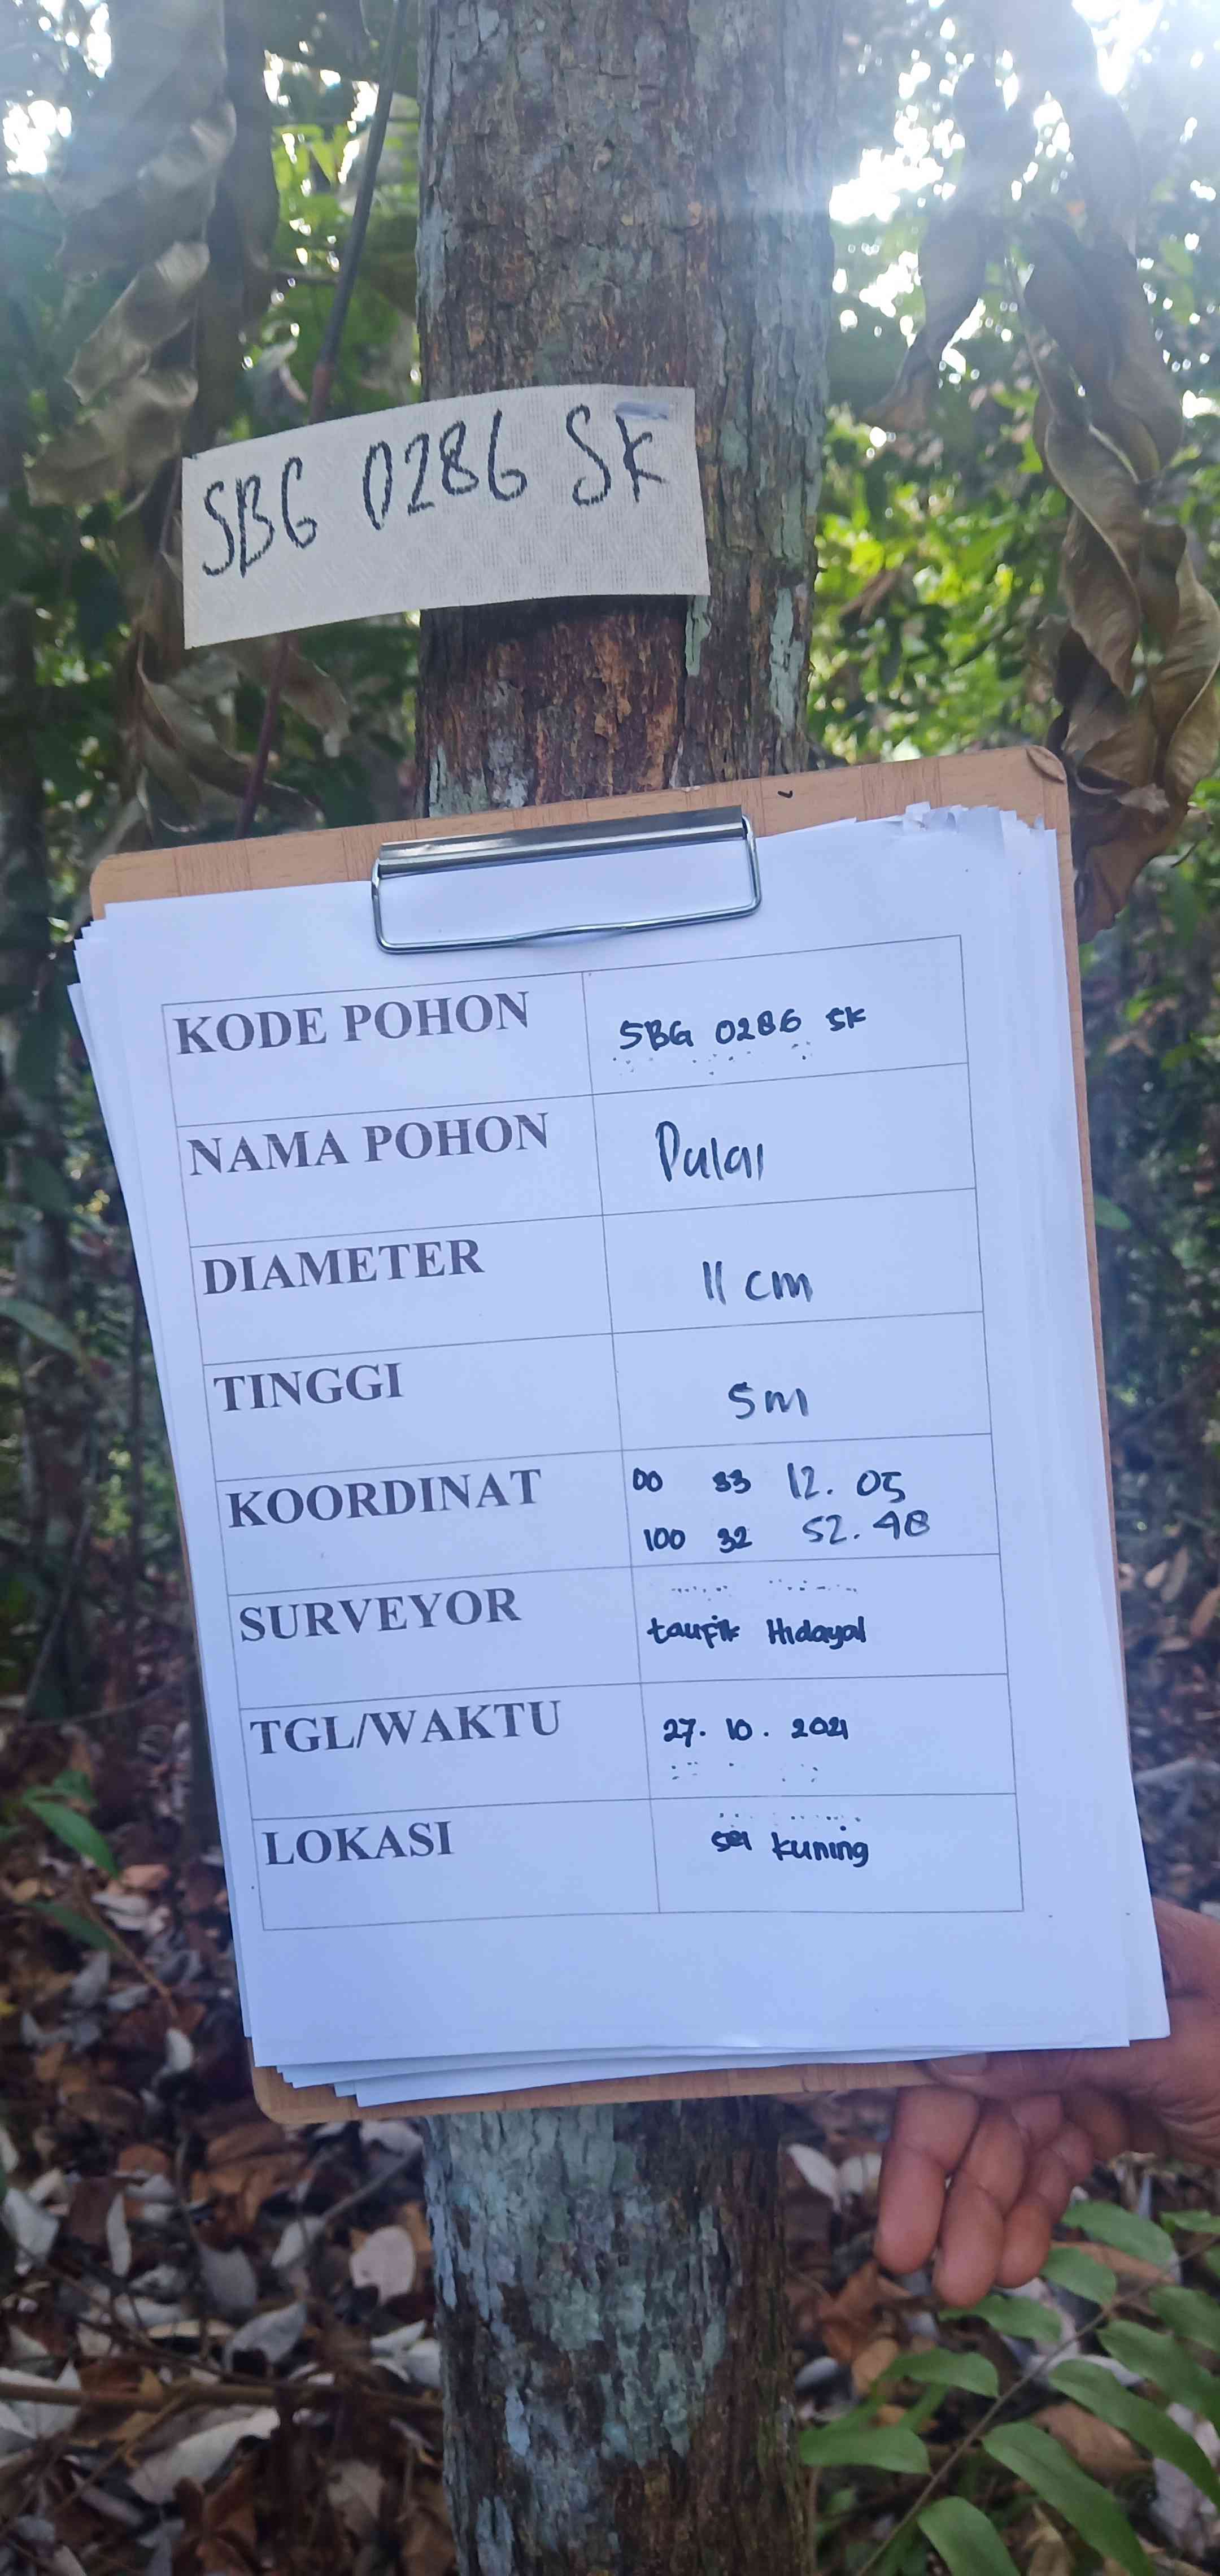 SBG 0286 SK
KODE POHON SBG 0286 SK
NAMA POHON Pulai
DIAMETER 11 cm
TINGGI 5m
KOORDINAT 00 33 12. 05
100 32 52. 48
SURVEYOR taufik Hidayat
TGL/WAKTU 27. 10. 2021
LOKASI sei kuning